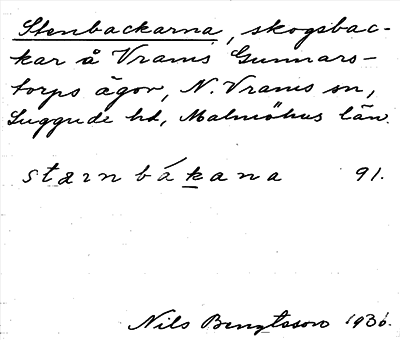 Stenbackarna, skogsbac-
kar å Vrams Gunnars-
torps ägor, N. Vrams sn,
Luggude hd, Malmöhus län.
stærnbákana 91.
Nils Bengtsson 1936.